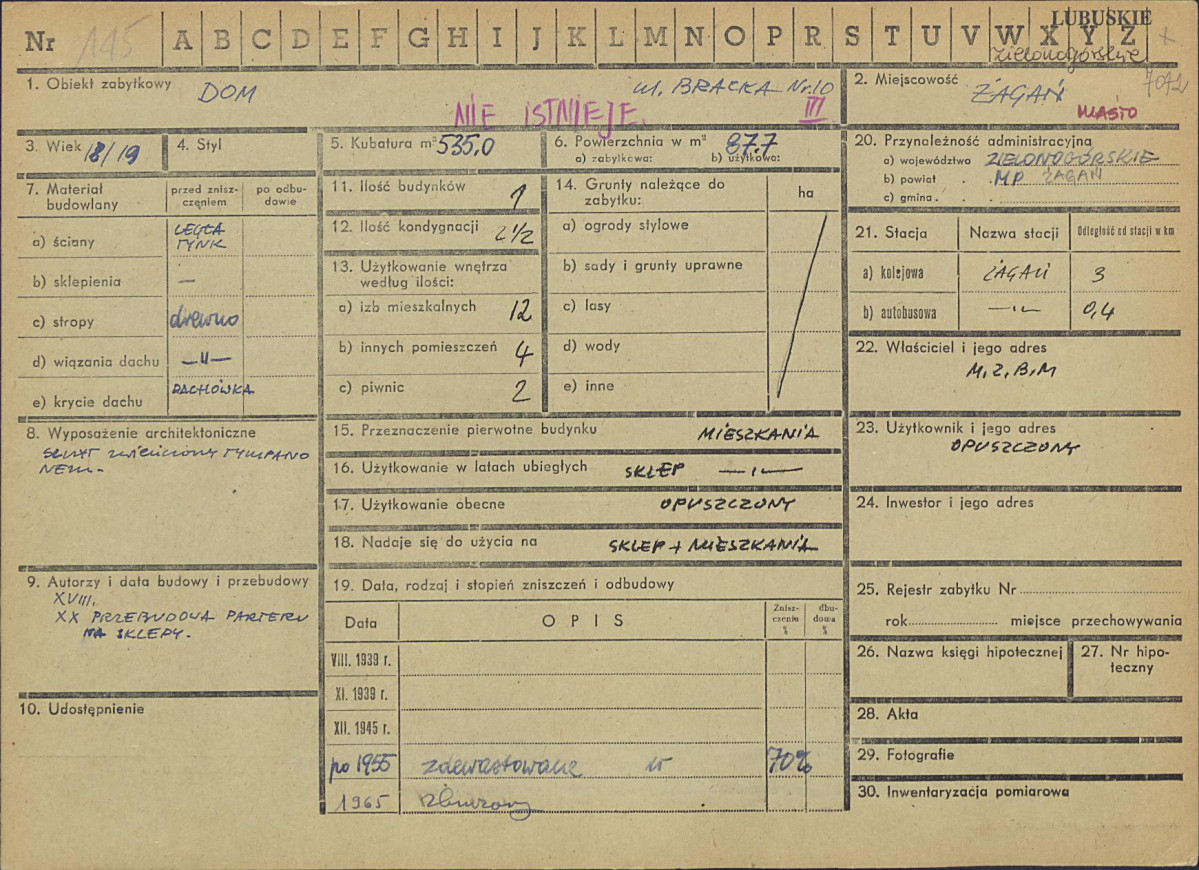 LUBUSKIE
Nr 145 A B C D E F G H I J K L M N O P R S T U V W X Y Z
zielonogórskie
7092
1. Obiekt zabytkowy DOM ul. BRACKA Nr. 10
NIE ISTNIEJE. III
2. Miejscowość ŻAGAŃ
MIASTO
3. Wiek 18/19
4. Styl
5. Kubatura m³ 535,0
6. Powierzchnia w m² 87.7
a) zabytkowa: b) użytkowa:
20. Przynależność administracyjna
a) województwo ZIELONOGÓRSKIE
b) powiat MP ŻAGAŃ
c) gmina
7. Materiał budowlany
przed zniszczęniem
po odbudowie
a) ściany CEGŁA TYNK
b) sklepienia —
c) stropy drewno
d) wiązania dachu —"—
e) krycie dachu DACHÓWKA
11. Ilość budynków 1
12. Ilość kondygnacji 2 1/2
13. Użytkowanie wnętrza
według ilości:
a) izb mieszkalnych 12
b) innych pomieszczeń 4
c) piwnic 2
14. Grunty należące do
zabytku:
ha
a) ogrody stylowe
b) sady i grunty uprawne
c) lasy
d) wody
e) inne
21. Stacja Nazwa stacji Odległość od stacji w km
a) kolejowa ŻAGAŃ 3
b) autobusowa —"— 0,4
22. Właściciel i jego adres
M.Z.B.M
8. Wyposażenie architektoniczne
SZCZYT ZWIEŃCZONY TYMPANO
NEM.-
15. Przeznaczenie pierwotne budynku MIESZKANIA
16. Użytkowanie w latach ubiegłych SKLEP —"—
17. Użytkowanie obecne OPUSZCZONY
18. Nadaje się do użycia na SKLEP + MIESZKANIA
23. Użytkownik i jego adres
OPUSZCZONY
24. Inwestor i jego adres
9. Autorzy i data budowy i przebudowy
XVIII.
XX PRZEBUDOWA PARTERU
NA SKLEPY.
10. Udostępnienie
19. Data, rodzaj i stopień zniszczeń i odbudowy
Data OPIS Zniszczenie % dbudowa %
VIII. 1939 r.
XI. 1939 r.
XII. 1945 r.
po 1955 zdewastowane w 70%
1965 zburzony
25. Rejestr zabytku Nr
rok miejsce przechowywania
26. Nazwa księgi hipotecznej
27. Nr hipoteczny
28. Akta
29. Fotografie
30. Inwentaryzacja pomiarowa